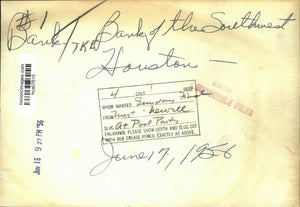 #1
Bank / THE Bank of the Southwest
Houston —
4 COLS DEEP
WHEN WANTED Sunday
FROM Newell
SLUG At Pool Party
ENGRAVER: PLEASE SHOW DEPTH AND SLUG CUT
WITH RED GREASE PENCIL EXACTLY AS ABOVE.
JUN 16 9 27 PM '56
June 17, 1956